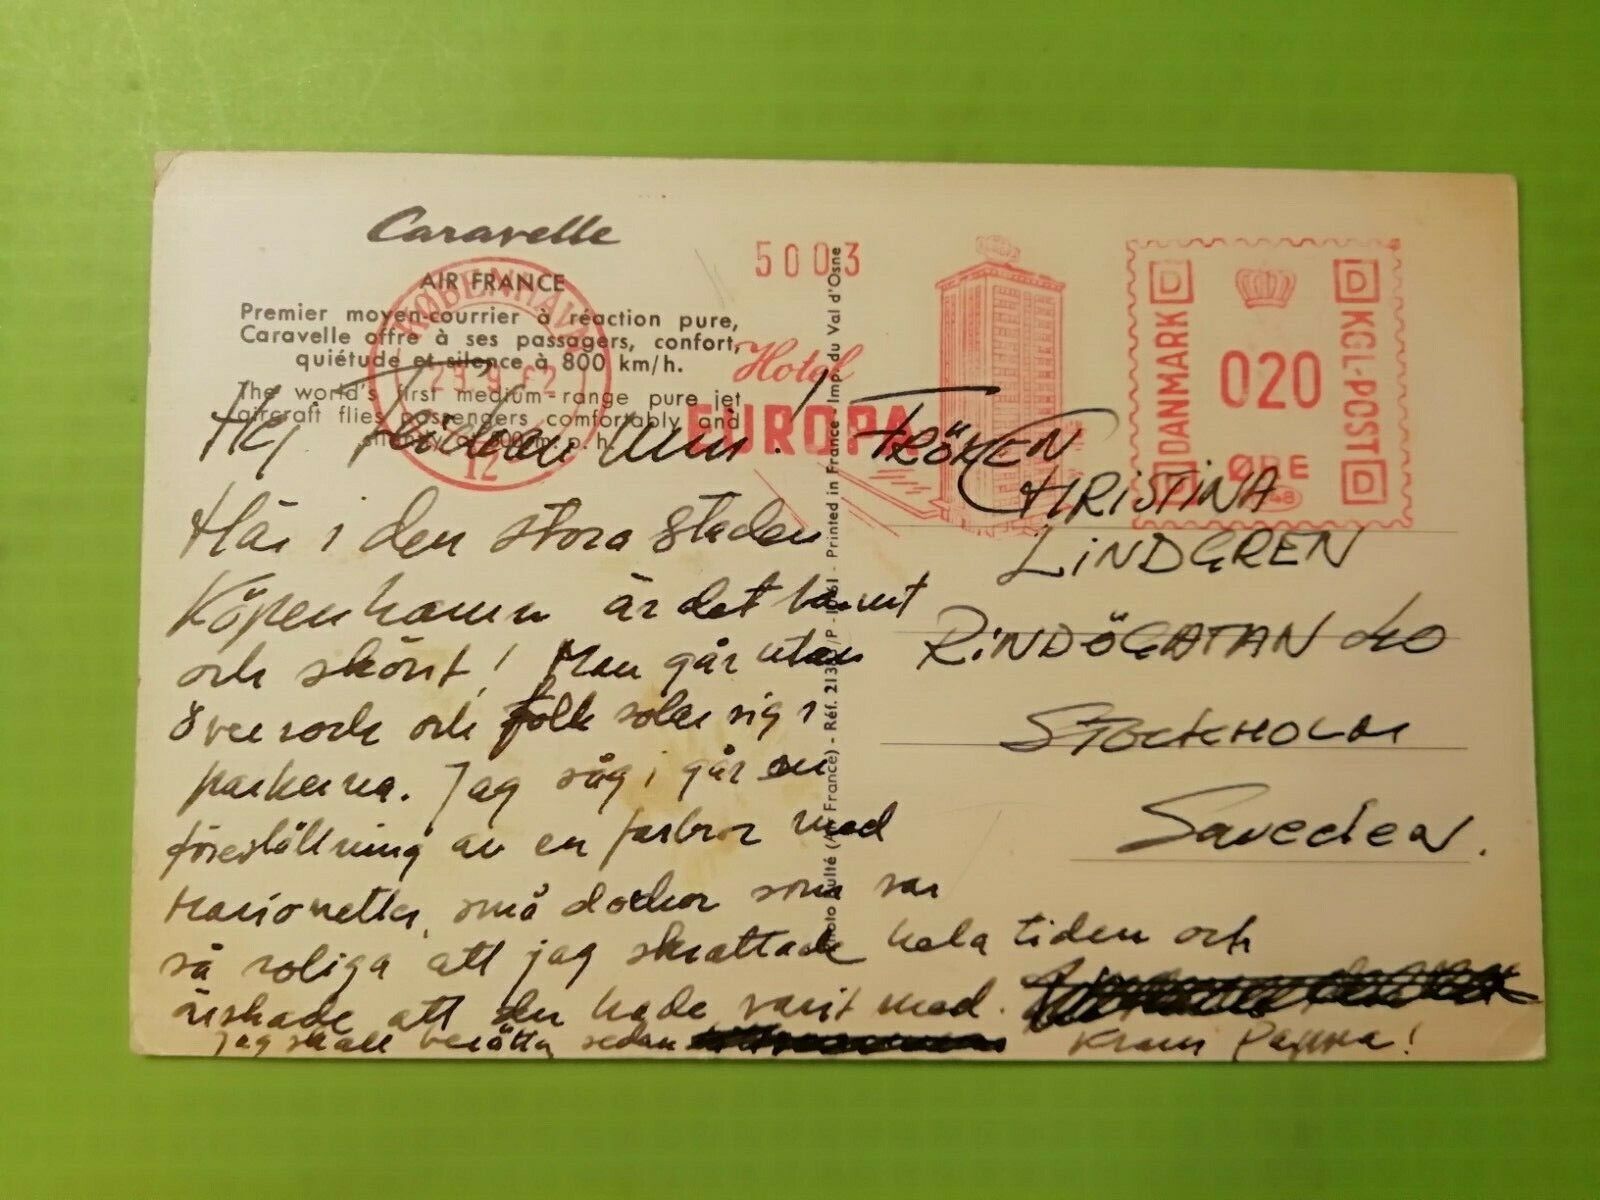 Caravelle
AIR FRANCE
Premier moyen-courrier à réaction pure,
Caravelle offre à ses passagers, confort,
quiétude et silence à 800 km/h.
The world's first medium-range pure jet
aircraft flies passengers comfortably and
p.h.
KØBENHAVN
29.9.62
12
5003
Hotel
EUROPA
DANMARK
KGL-POST
020
ØRE
D
D
D
D
Hej min!
Här i den stora staden
Köpenhamn är det varmt
och skönt! Man går utan
överrock och folk solar sig i
parkerna. Jag såg i går en
föreställning av en farbror med
Marionetter, små dockor som var
så roliga att jag skrattade hela tiden och
önskade att du hade varit med.
Jag skall berätta sedan
Kram Pappa!
Printed in France - Imp. du Val d'Osne
FRÖKEN
CHRISTINA
LINDGREN
RINDÖGATAN 40
STOCKHOLM
Sweden.